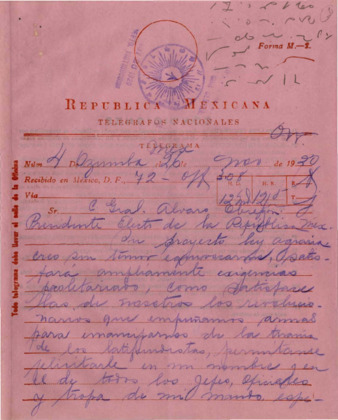 Forma M.-2.
REPUBLICA MEXICANA
TELEGRAFOS NACIONALES
TELEGRAMA
Núm. 4 D. Ozumba 26 Nov. de 1920
Recibido en México, D. F., 72 - Off
Vía
H. D. H. R.
Todo telegrama debe llevar el sello de la Oficina
Sr. C. Gral. Alvaro Obregón
Presidente Electo de la República Mex.
En proyecto ley agraria
creo sin temor equivocarme,
para ampliamente exigencias
proletariado, como satisface
las de nosotros los revolucio
narios que empuñamos armas
para emanciparnos de la tiranía
de los latifundistas, permítame
felicitarle en mi nombre y en
el de todos los Jefes, Oficiales
y tropa de mi mando espe-